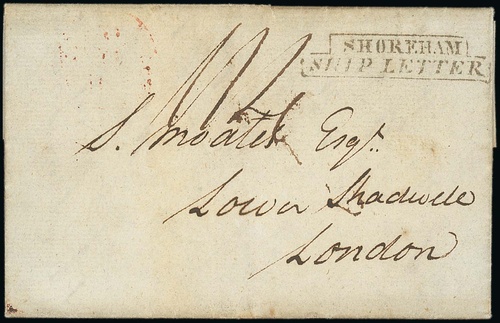 SHOREHAM
SHIP LETTER
S. Moates Esqr.
Lower Shadwele
London